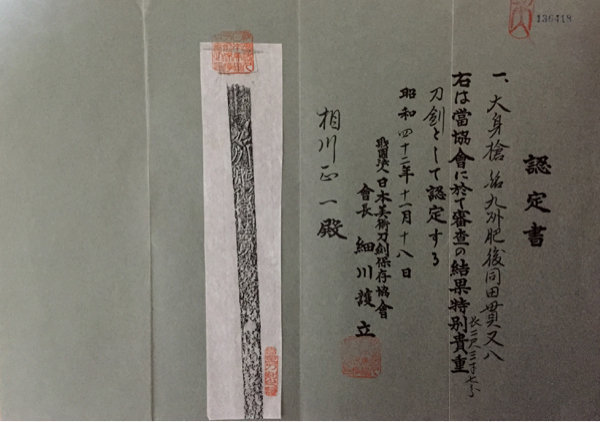 136418
認定書
一、大身槍 銘九州肥後同田貫又八
長二尺三寸七分
右は當協會に於て審査の結果特別貴重
刀剣として認定する
昭和四十二年十一月十八日
財團法人日本美術刀剣保存協會
會長 細川護立
相川正一殿